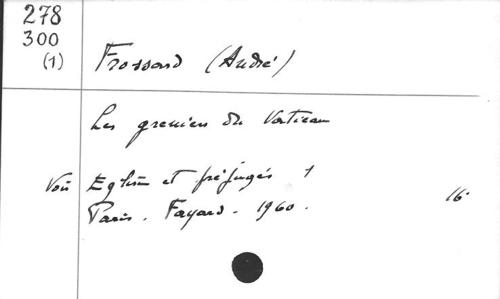 278
300
(1)
Frossard (André)
Les greniers du Vatican
Voir Eglise et préjugés 1
Paris. Fayard. 1960. 16°